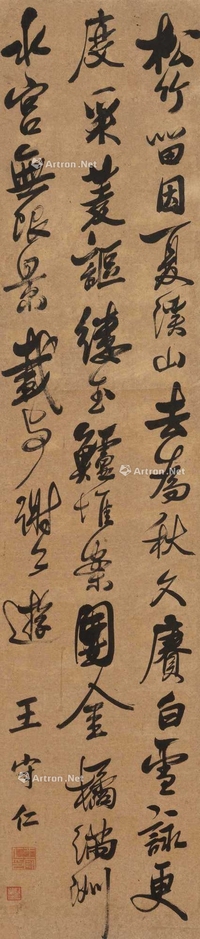 松竹留因夏溪山去為秋久賡白雪詠更
度采菱謳縷玉鱸堆案團金橘滿洲
水宮無限景載与謝公遊
王守仁
Artron.Net
Artron.Net
Artron.Net
Artron.Net
Artron.Net
Artron.Net